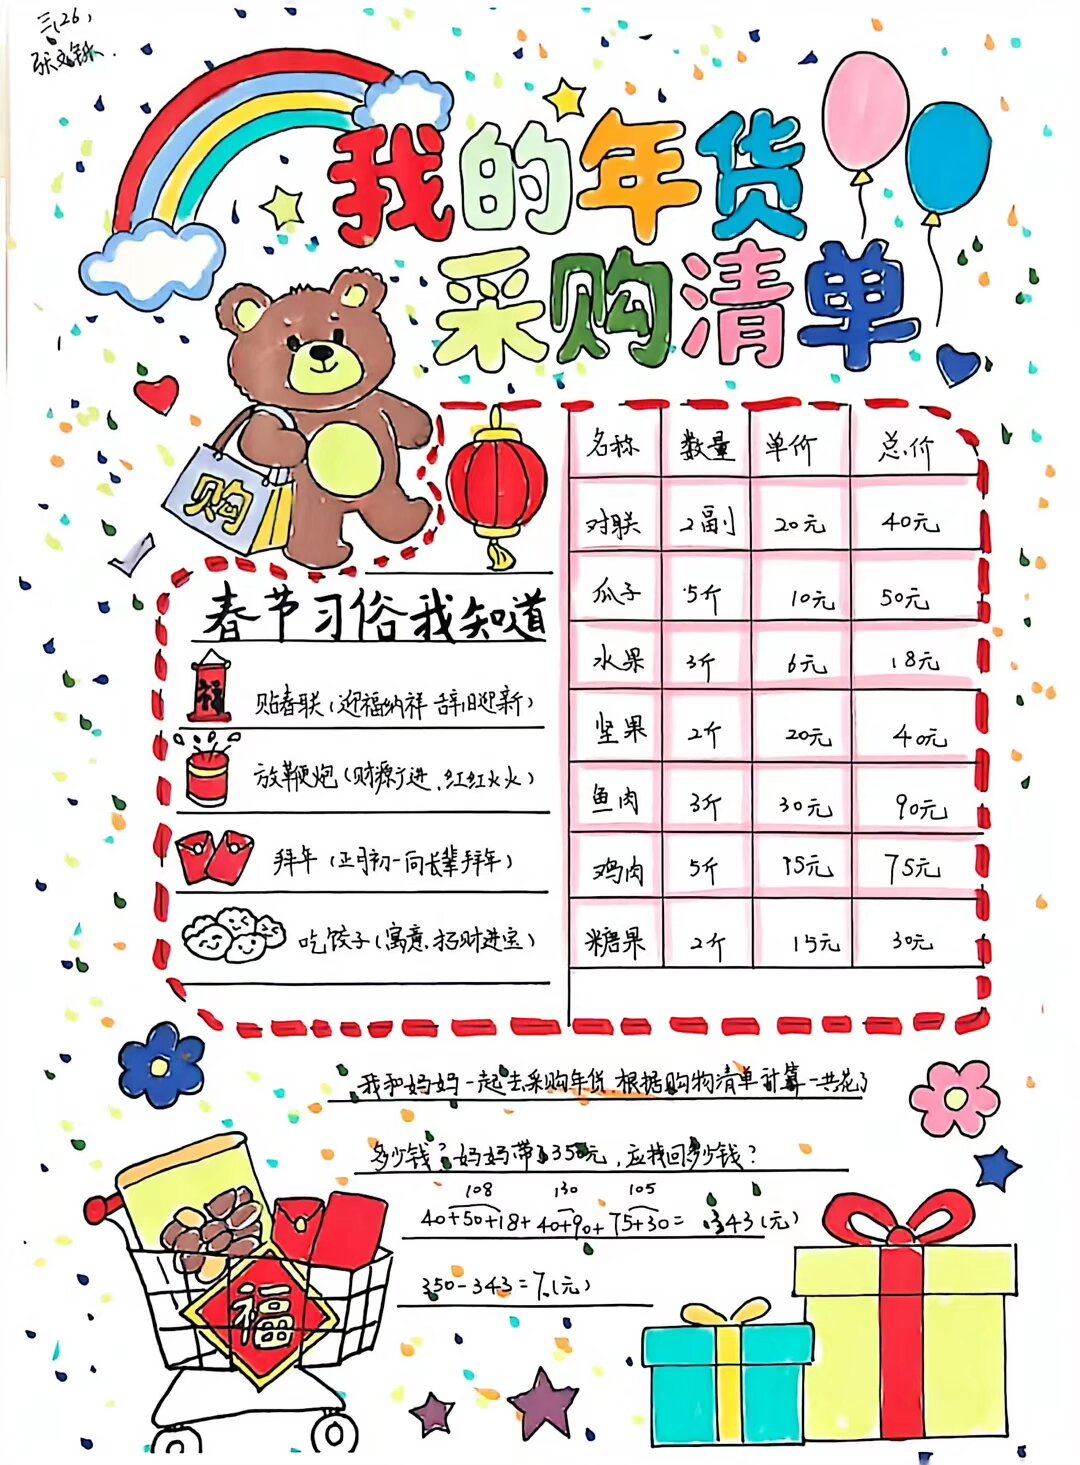 三(26)
我的年货
采购清单
购
名称 数量 单价 总价
对联 2副 20元 40元
瓜子 5斤 10元 50元
水果 3斤 6元 18元
坚果 2斤 20元 40元
鱼肉 3斤 30元 90元
鸡肉 5斤 15元 75元
糖果 2斤 15元 30元
春节习俗我知道
福
贴春联(迎福纳祥 辞旧迎新)
放鞭炮(财源广进、红红火火)
拜年(正月初一向长辈拜年)
吃饺子(寓意、招财进宝)
我和妈妈一起去采购年货.根据购物清单计算一共花了
多少钱?妈妈带了350元,应找回多少钱?
108 130 105
40+50+18+40+90+75+30=343(元)
350-343=7(元)
福